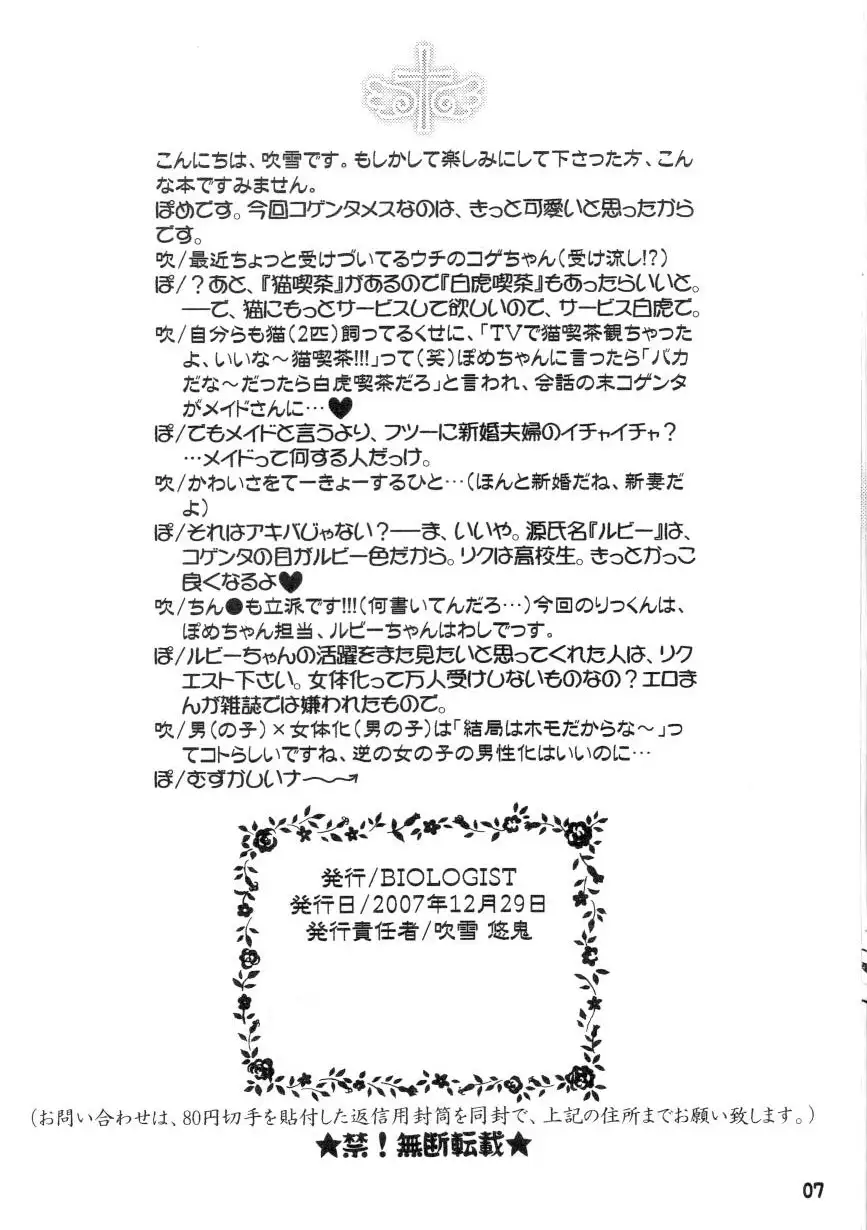 こんにちは、吹雪です。もしかして楽しみにして下さった方、こん
な本ですみません。
ぽめです。今回コゲンタメスなのは、きっと可愛いと思ったから
です。
吹/最近ちょっと受けづいてるウチのコゲちゃん(受け流し!?)
ぽ/?あと、『猫喫茶』があるので『白虎喫茶』もあったらいいと。
――で、猫にもっとサービスして欲しいので、サービス白虎で。
吹/自分らも猫(2匹)飼ってるくせに、「TVで猫喫茶観ちゃった
よ、いいな〜猫喫茶!!!」って(笑)ぽめちゃんに言ったら「バカ
だな〜だったら白虎喫茶だろ」と言われ、会話の末コゲンタ
がメイドさんに…♥
ぽ/でもメイドと言うより、フツーに新婚夫婦のイチャイチャ?
…メイドって何する人だっけ。
吹/かわいさをてーきょーするひと…(ほんと新婚だね、新妻だ
よ)
ぽ/それはアキバじゃない?――ま、いいや。源氏名『ルビー』は、
コゲンタの目がルビー色だから。リクは高校生。きっとかっこ
良くなるよ♥
吹/ちん●も立派です!!!(何書いてんだろ…)今回のりっくんは、
ぽめちゃん担当、ルビーちゃんはわしでっす。
ぽ/ルビーちゃんの活躍をまた見たいと思ってくれた人は、リク
エスト下さい。女体化って万人受けしないものなの?エロま
んが雑誌では嫌われたもので。
吹/男(の子)×女体化(男の子)は「結局はホモだからな〜」っ
てコトらしいですね、逆の女の子の男性化はいいのに…
ぽ/むずかしいナ〜〜→
発行/BIOLOGIST
発行日/2007年12月29日
発行責任者/吹雪 悠鬼
(お問い合わせは、80円切手を貼付した返信用封筒を同封で、上記の住所までお願い致します。)
★禁!無断転載★
07